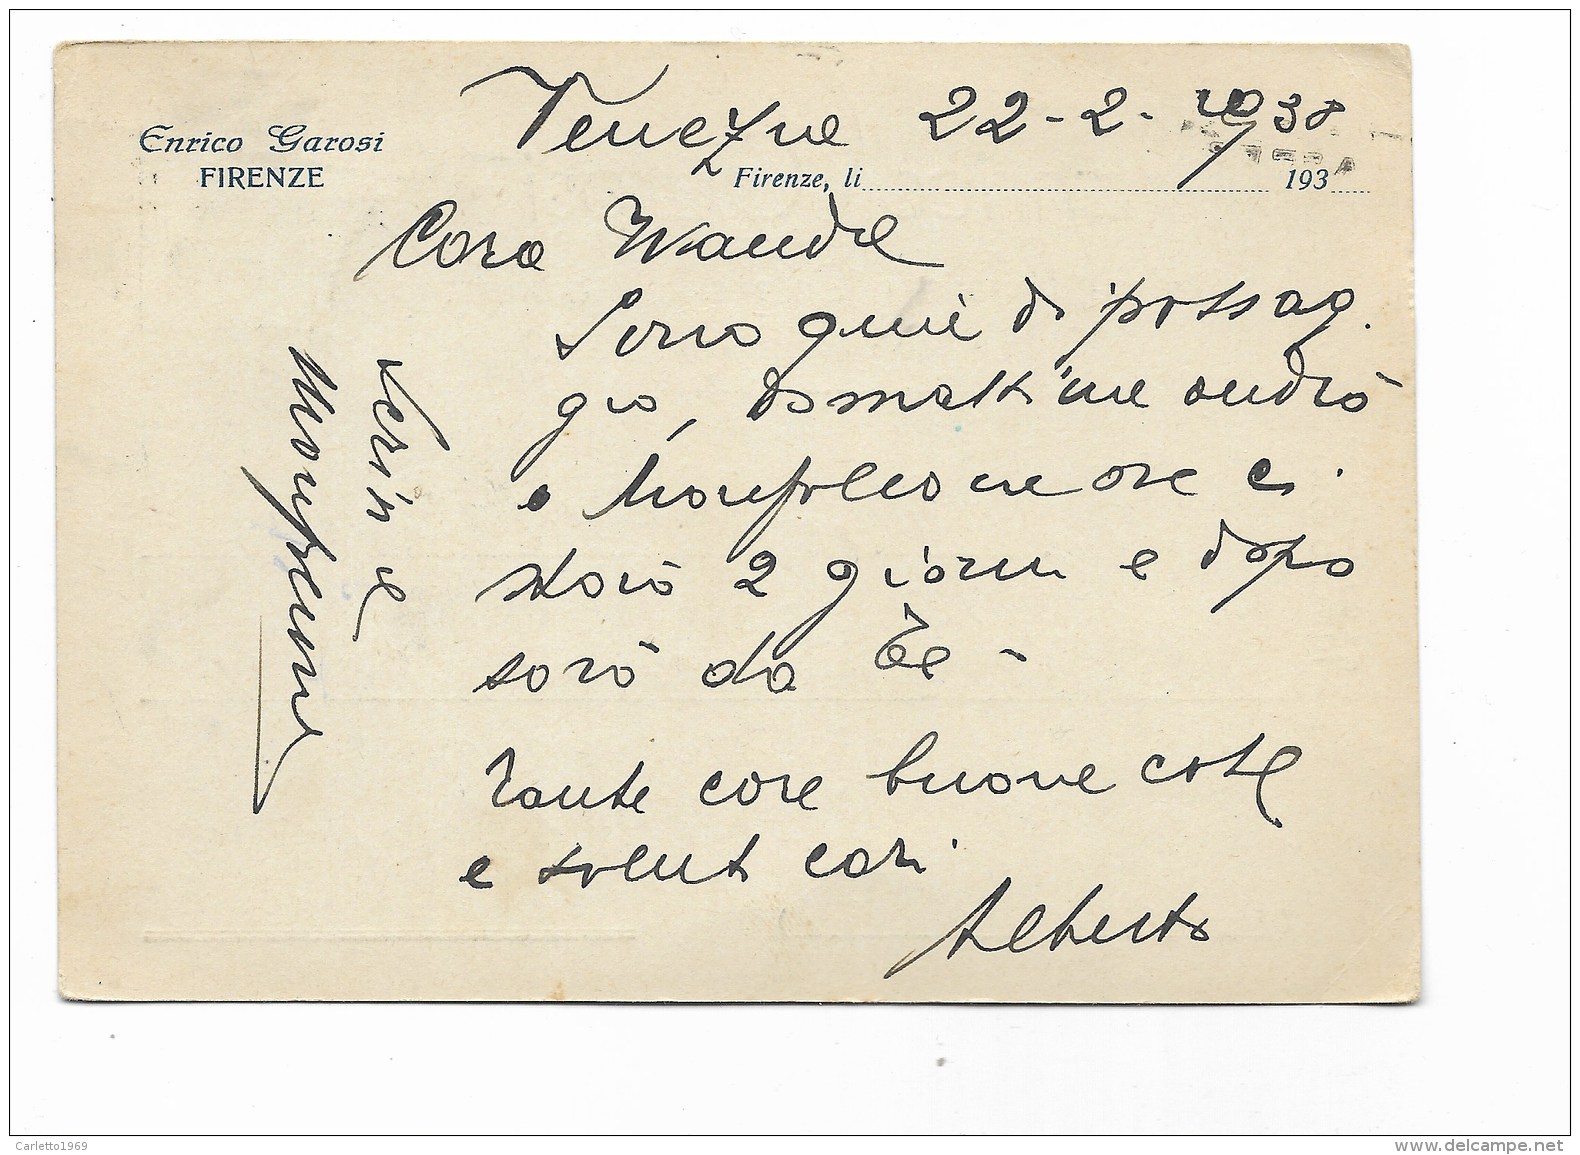 Enrico Garosi
FIRENZE
Venezia 22-2-1938
Firenze, li 193
Cara Wanda
Sono qui di passag
gio, domattina andrò
a Monfalcone ove ci
starò 2 giorni e dopo
sarò da Te -
Tante care buone cose
e saluti cari
Alberto
Scrivi a
Monfalcone
Carletto1969
www.delcampe.net